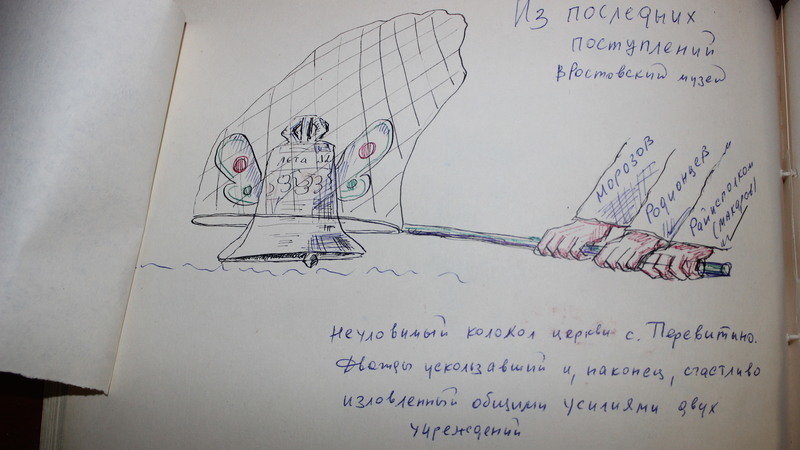 Из последних
поступлений
в Ростовский музей
лета
Морозов
Родионцев
Райисполком
(Макаров)
Неуловимый колокол церкви с. Перевитино.
Дважды ускользавший и, наконец, счастливо
изловленный общими усилиями двух
учреждений